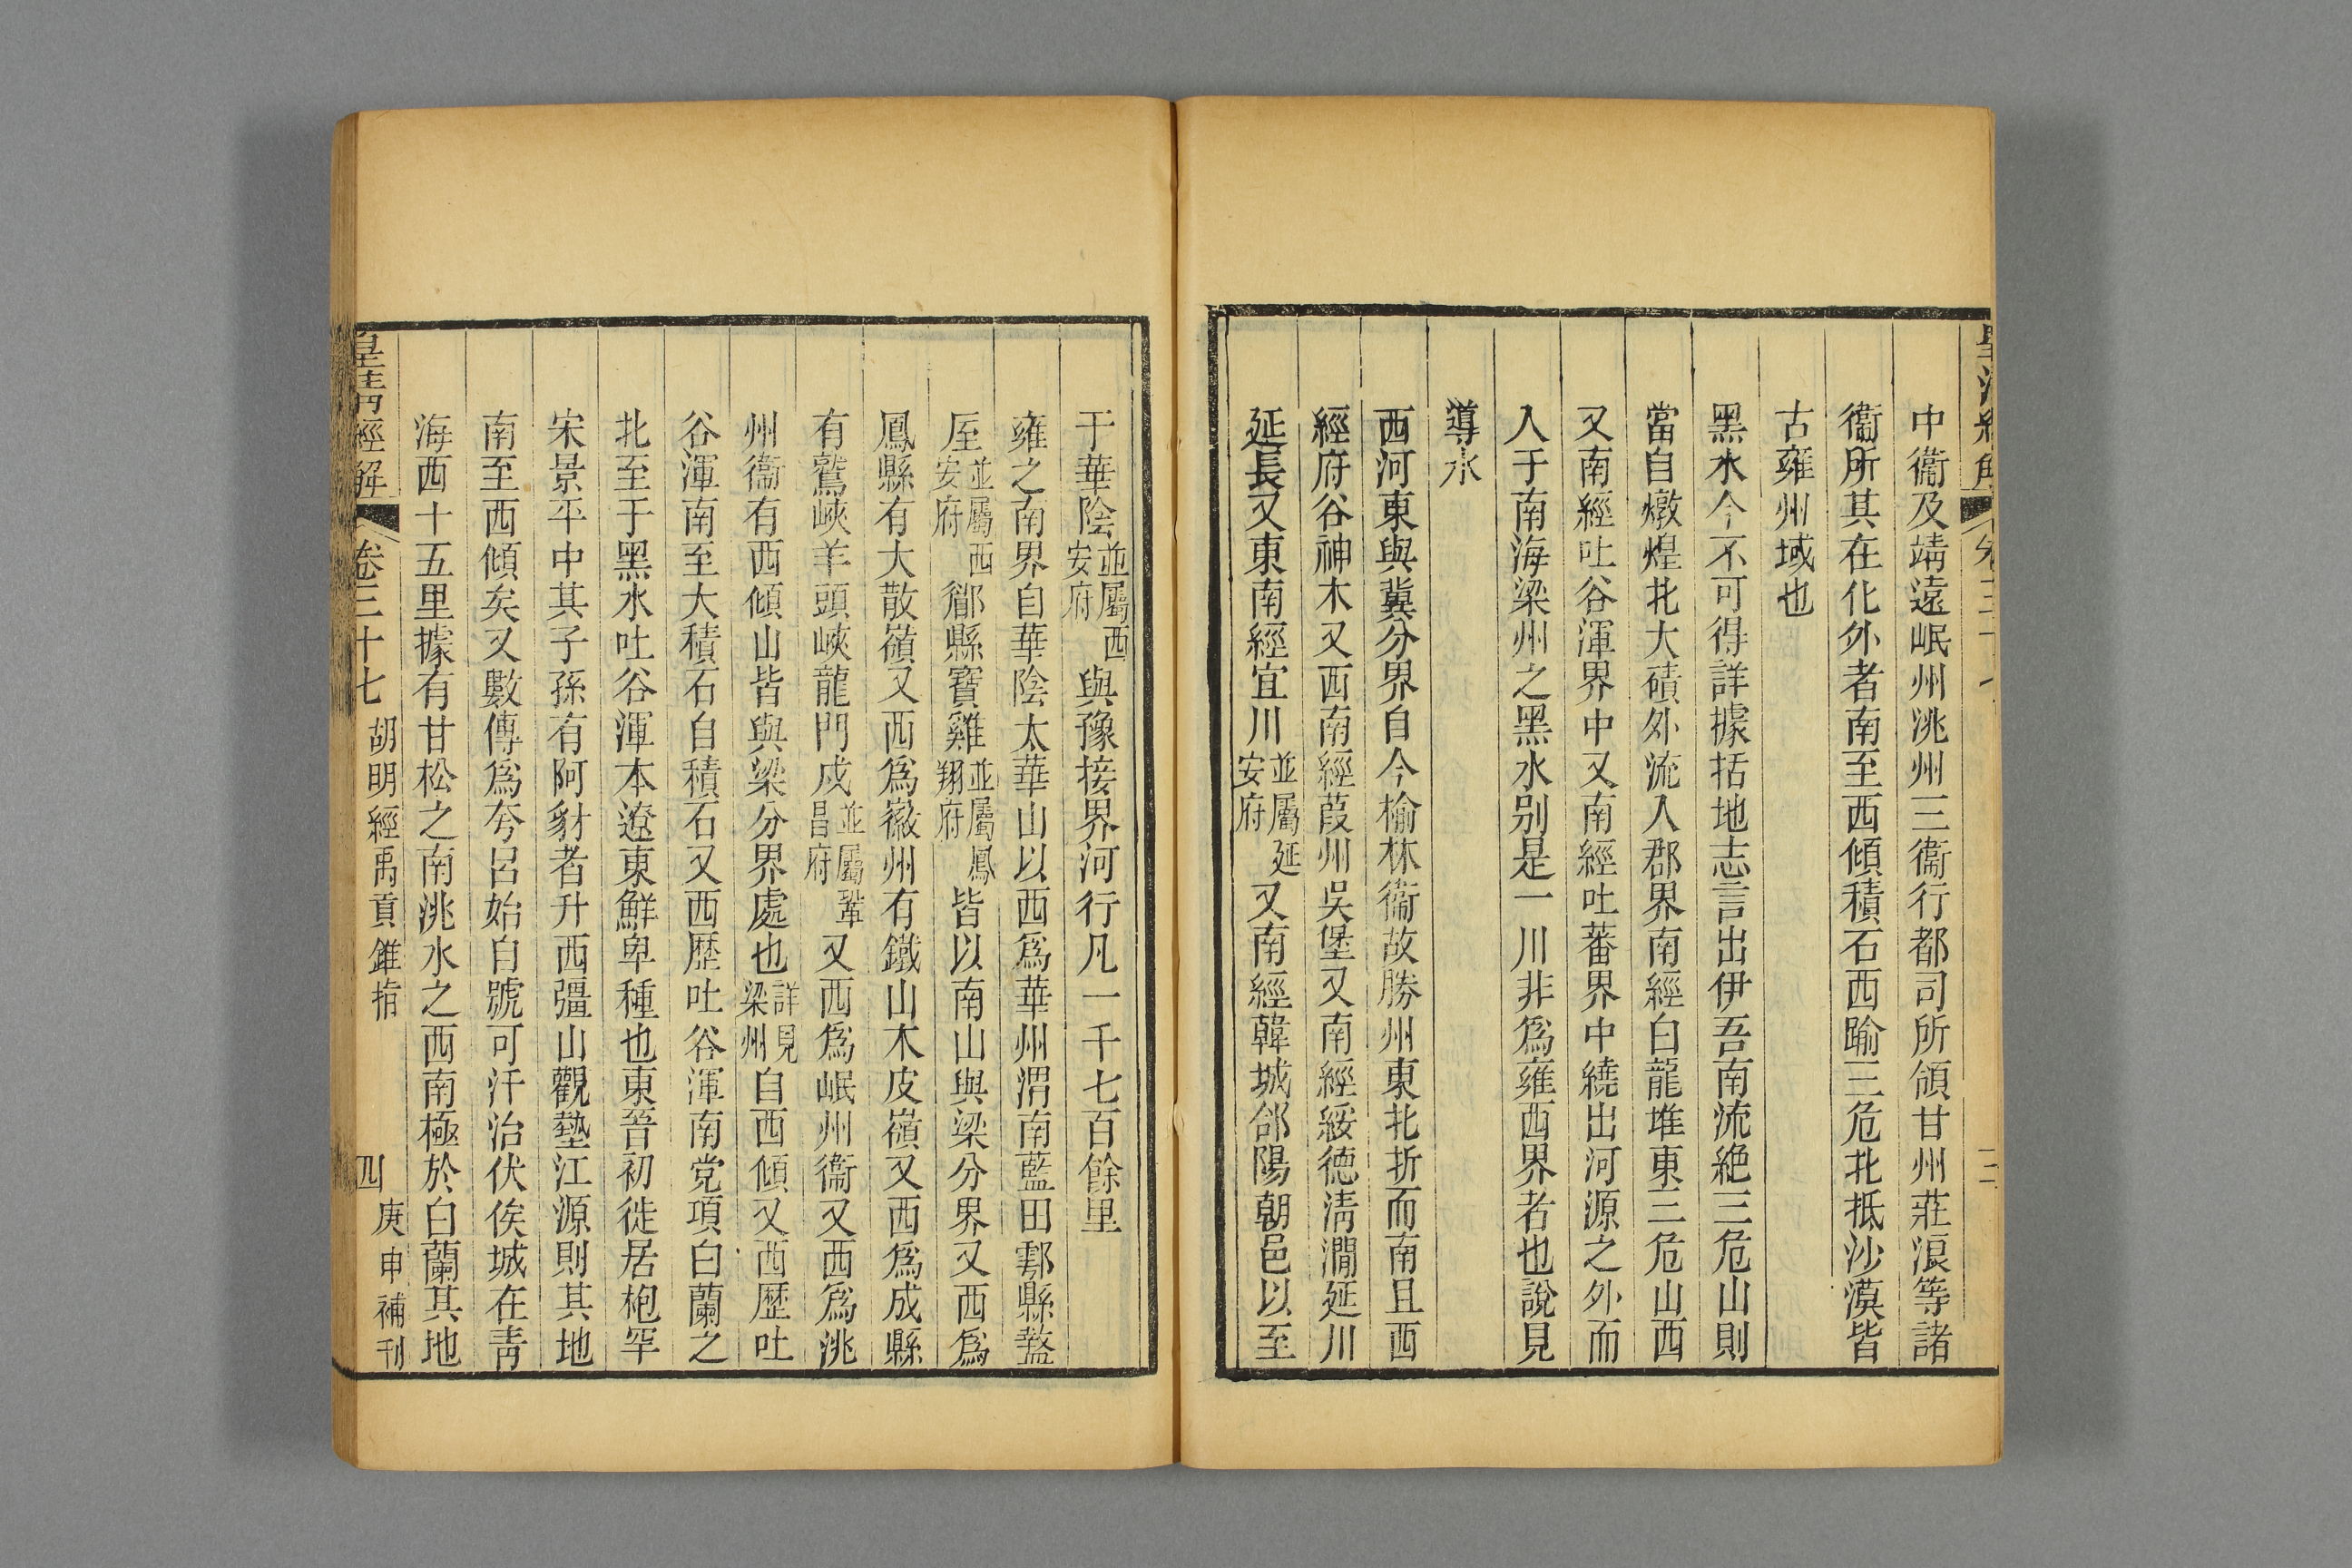 中衞及靖遠岷州洮州三衞行都司所領甘州莊浪等諸
衞所其在化外者南至西傾積石西踰三危北抵沙漠皆
古雍州域也
黑水今不可得詳據括地志言出伊吾南流絶三危山則
當自燉煌北大磧外流入郡界南經白龍堆東三危山西
又南經吐谷渾界中又南經吐蕃界中繞出河源之外而
入于南海梁州之黑水別是一川非爲雍西界者也說見
導水
西河東與冀分界自今榆林衞故勝州東北折而南且西
經府谷神木又西南經葭州吳堡又南經綏德淸澗延川
延長又東南經宜川並屬延安府又南經韓城郃陽朝邑以至
于華陰並屬西安府與豫接界河行凡一千七百餘里
雍之南界自華陰太華山以西爲華州渭南藍田鄠縣盩
厔並屬西安府郿縣寶雞並屬鳳翔府皆以南山與梁分界又西爲
鳳縣有大散嶺又西爲徽州有鐵山木皮嶺又西爲成縣
有鷲峽羊頭峽龍門戍並屬鞏昌府又西爲岷州衞又西爲洮
州衞有西傾山皆與梁分界處也詳見梁州自西傾又西歷吐
谷渾南至大積石自積石又西歷吐谷渾南党項白蘭之
北至于黑水吐谷渾本遼東鮮卑種也東晉初徙居枹罕
宋景平中其子孫有阿豺者升西彊山觀墊江源則其地
南至西傾矣又數傳爲夸呂始自號可汗治伏俟城在靑
海西十五里據有甘松之南洮水之西南極於白蘭其地
皇淸經解 卷三十七 胡明經禹貢錐指 四 庚申補刊